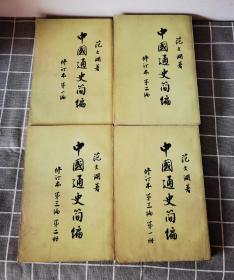 范文瀾著
中國通史简编
修订本 第一编
范文瀾著
中國通史简编
修订本 第二编
范文瀾著
中國通史简编
修订本 第三编 第二册
范文瀾著
中國通史简编
修订本 第三编 第一册